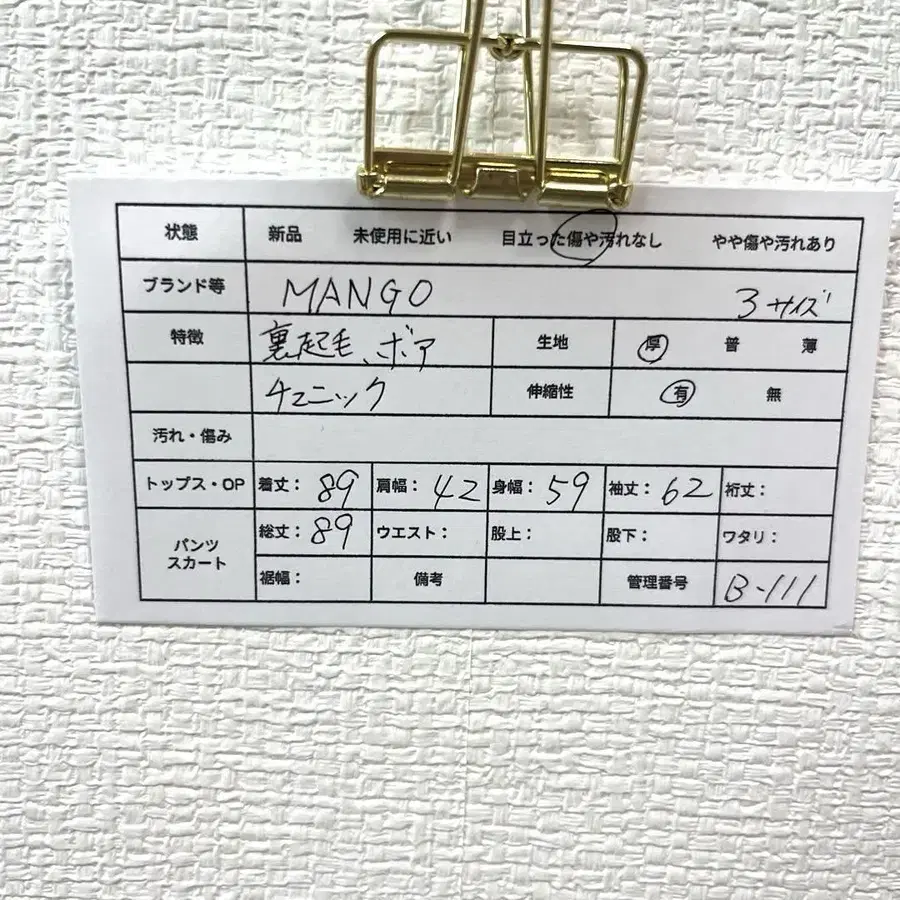 状態 新品 未使用に近い 目立った傷や汚れなし やや傷や汚れあり
ブランド等 MANGO 3サイズ
特徴 裏起毛、ボア 生地 厚 普 薄
チュニック 伸縮性 有 無
汚れ・傷み
トップス・OP 着丈: 89 肩幅: 42 身幅: 59 袖丈: 62 裄丈:
パンツ スカート 総丈: 89 ウエスト: 股上: 股下: ワタリ:
裾幅: 備考 管理番号 B-111